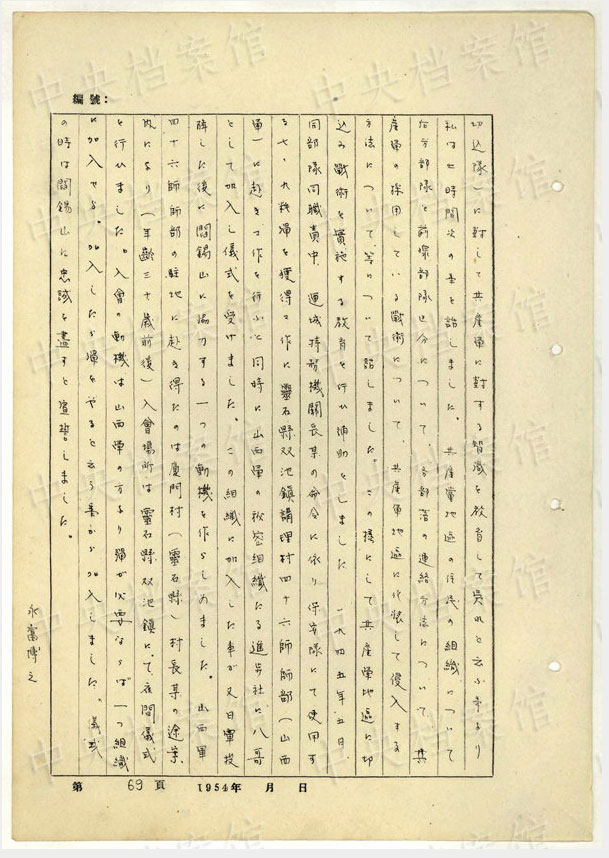 編號:
切込隊一に對して共産軍に對する智識を教育して呉れと云ふ事より
私は七時間次の事を話しました。共産黨地區の住民の組織について
方法について、等について話しました。この様にして共産軍地區に切
込み戰術を實施する教育を行ひ補助をしました 一九四五年五月、
同部隊同職責中、運城特務機關長某の命令に依り、保安隊にて使用す
る七、九粍彈を獲得工作に靈石縣双池鎮講理村四十六師師部(山西
軍)に赴き工作を行ふと同時に山西軍の秘密組織たる進步社に八哥
として加入し儀式を受けました。この組織に加入した事が又日軍投
降した後に閻錫山に協力する一つの動機を作らしめました。山西軍
四十六師師部の駐地に赴き得たのは厦門村(靈石縣)村長某の
内により(年齡三十歲前後)入會場所は靈石縣双池鎮にて夜間儀式
を行ひました。入會の動機は山西軍の方より彈が必要ならば一つ組織
に加入せよ。加入したら彈をやると云ふ事から加入しました。儀式
の時は閻錫山に忠誠を盡すと宣誓しました。
永富博之
第 69 頁 1954年 月 日
中央档案馆